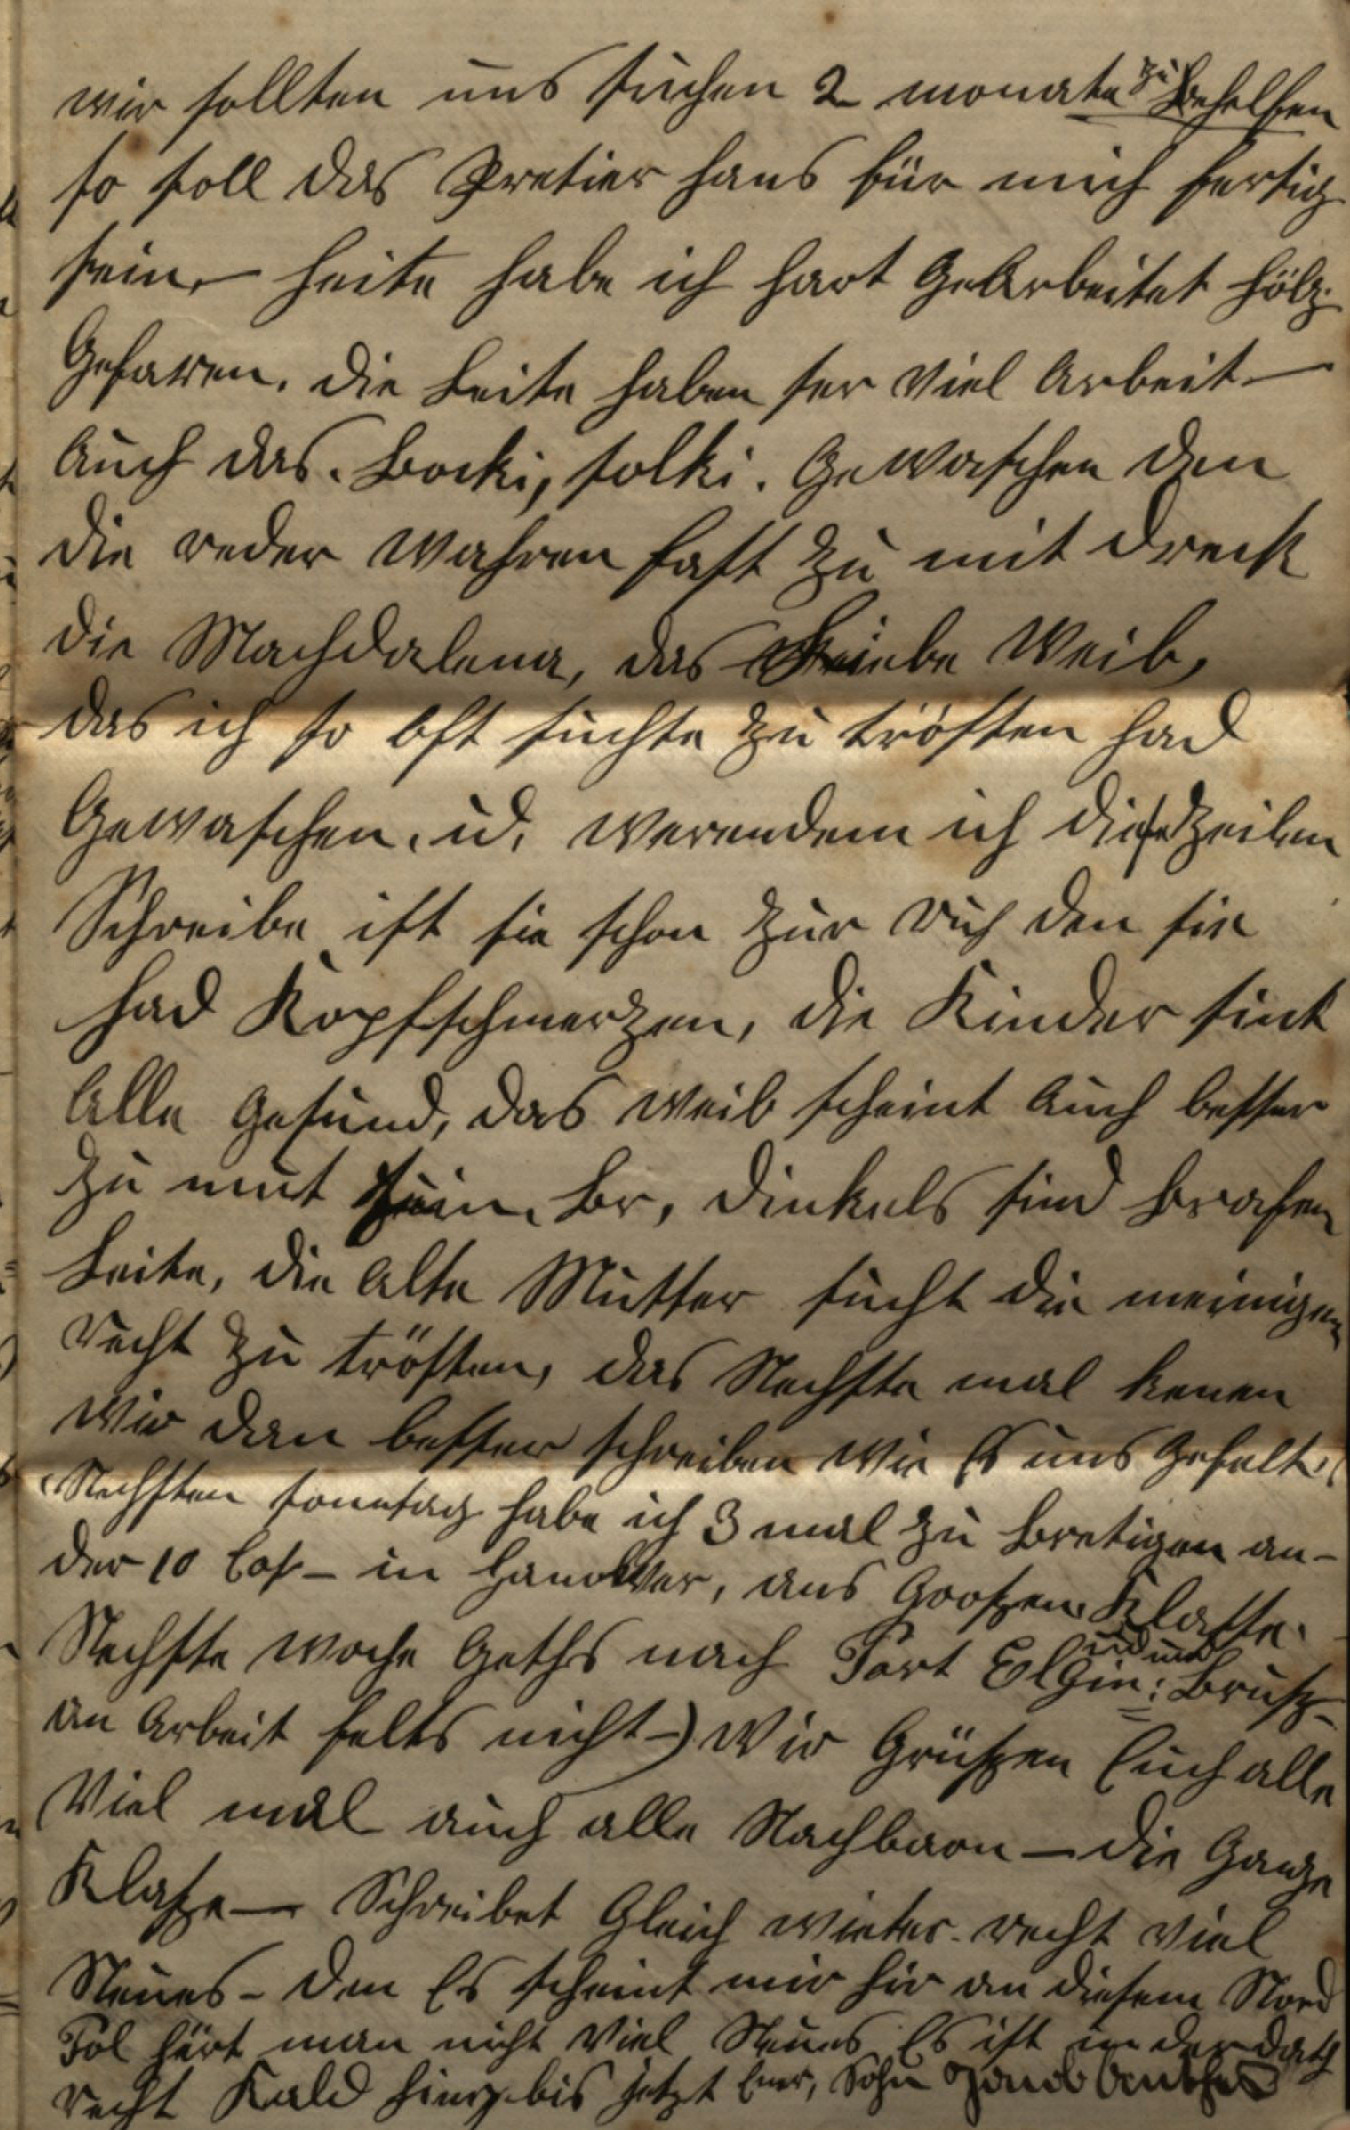 wir sollten uns suchen 2 monate zu Behelfen
so soll das Pretier haus für mich fertig
sein, — heite habe ich hart GeArbeitet hölz
Gefaren. die Leite haben ser Viel Arbeit —
Auch das. Bocki, solki. Gewaschen den
die reder Wahren fast zu mit Dreck
die Machdalena, das Liebe Weib,
das ich so oft suchte zu trösten had
Gewaschen, ud. werendem ich diese Zeilen
Schreibe ist sie schon zur Ruh den sie
had Kopfschmerzen, die Kinder sint
Alle Gesund, das weib scheint Auch besser
zu mut sein. Br, Dinkels sind Brafen
Leite, die Alte Mutter sucht die meinigen
recht zu trösten, das Nechste mal kenen
wir dan besser schreiben wie Es uns gefelt.
(Nechsten sonntag habe ich 3 mal zu Bretigen an-
der 10 Cos — in Hanower, aus Grosen Klasse.
Nechste woche Geths nach Port Elgin: ud nach Brusz
an Arbeit felts nicht —) Wir Grüszen Euch alle
Viel mal auch alle Nachbarn — die Ganze
Klasze — Schreibet Gleich wieter recht Viel
Neues — den Es scheint mir hir an diesem Nord
Pol hört man nicht Viel Neues Es ist in der dath
recht Kald hir bis jetzt Euer, Sohn